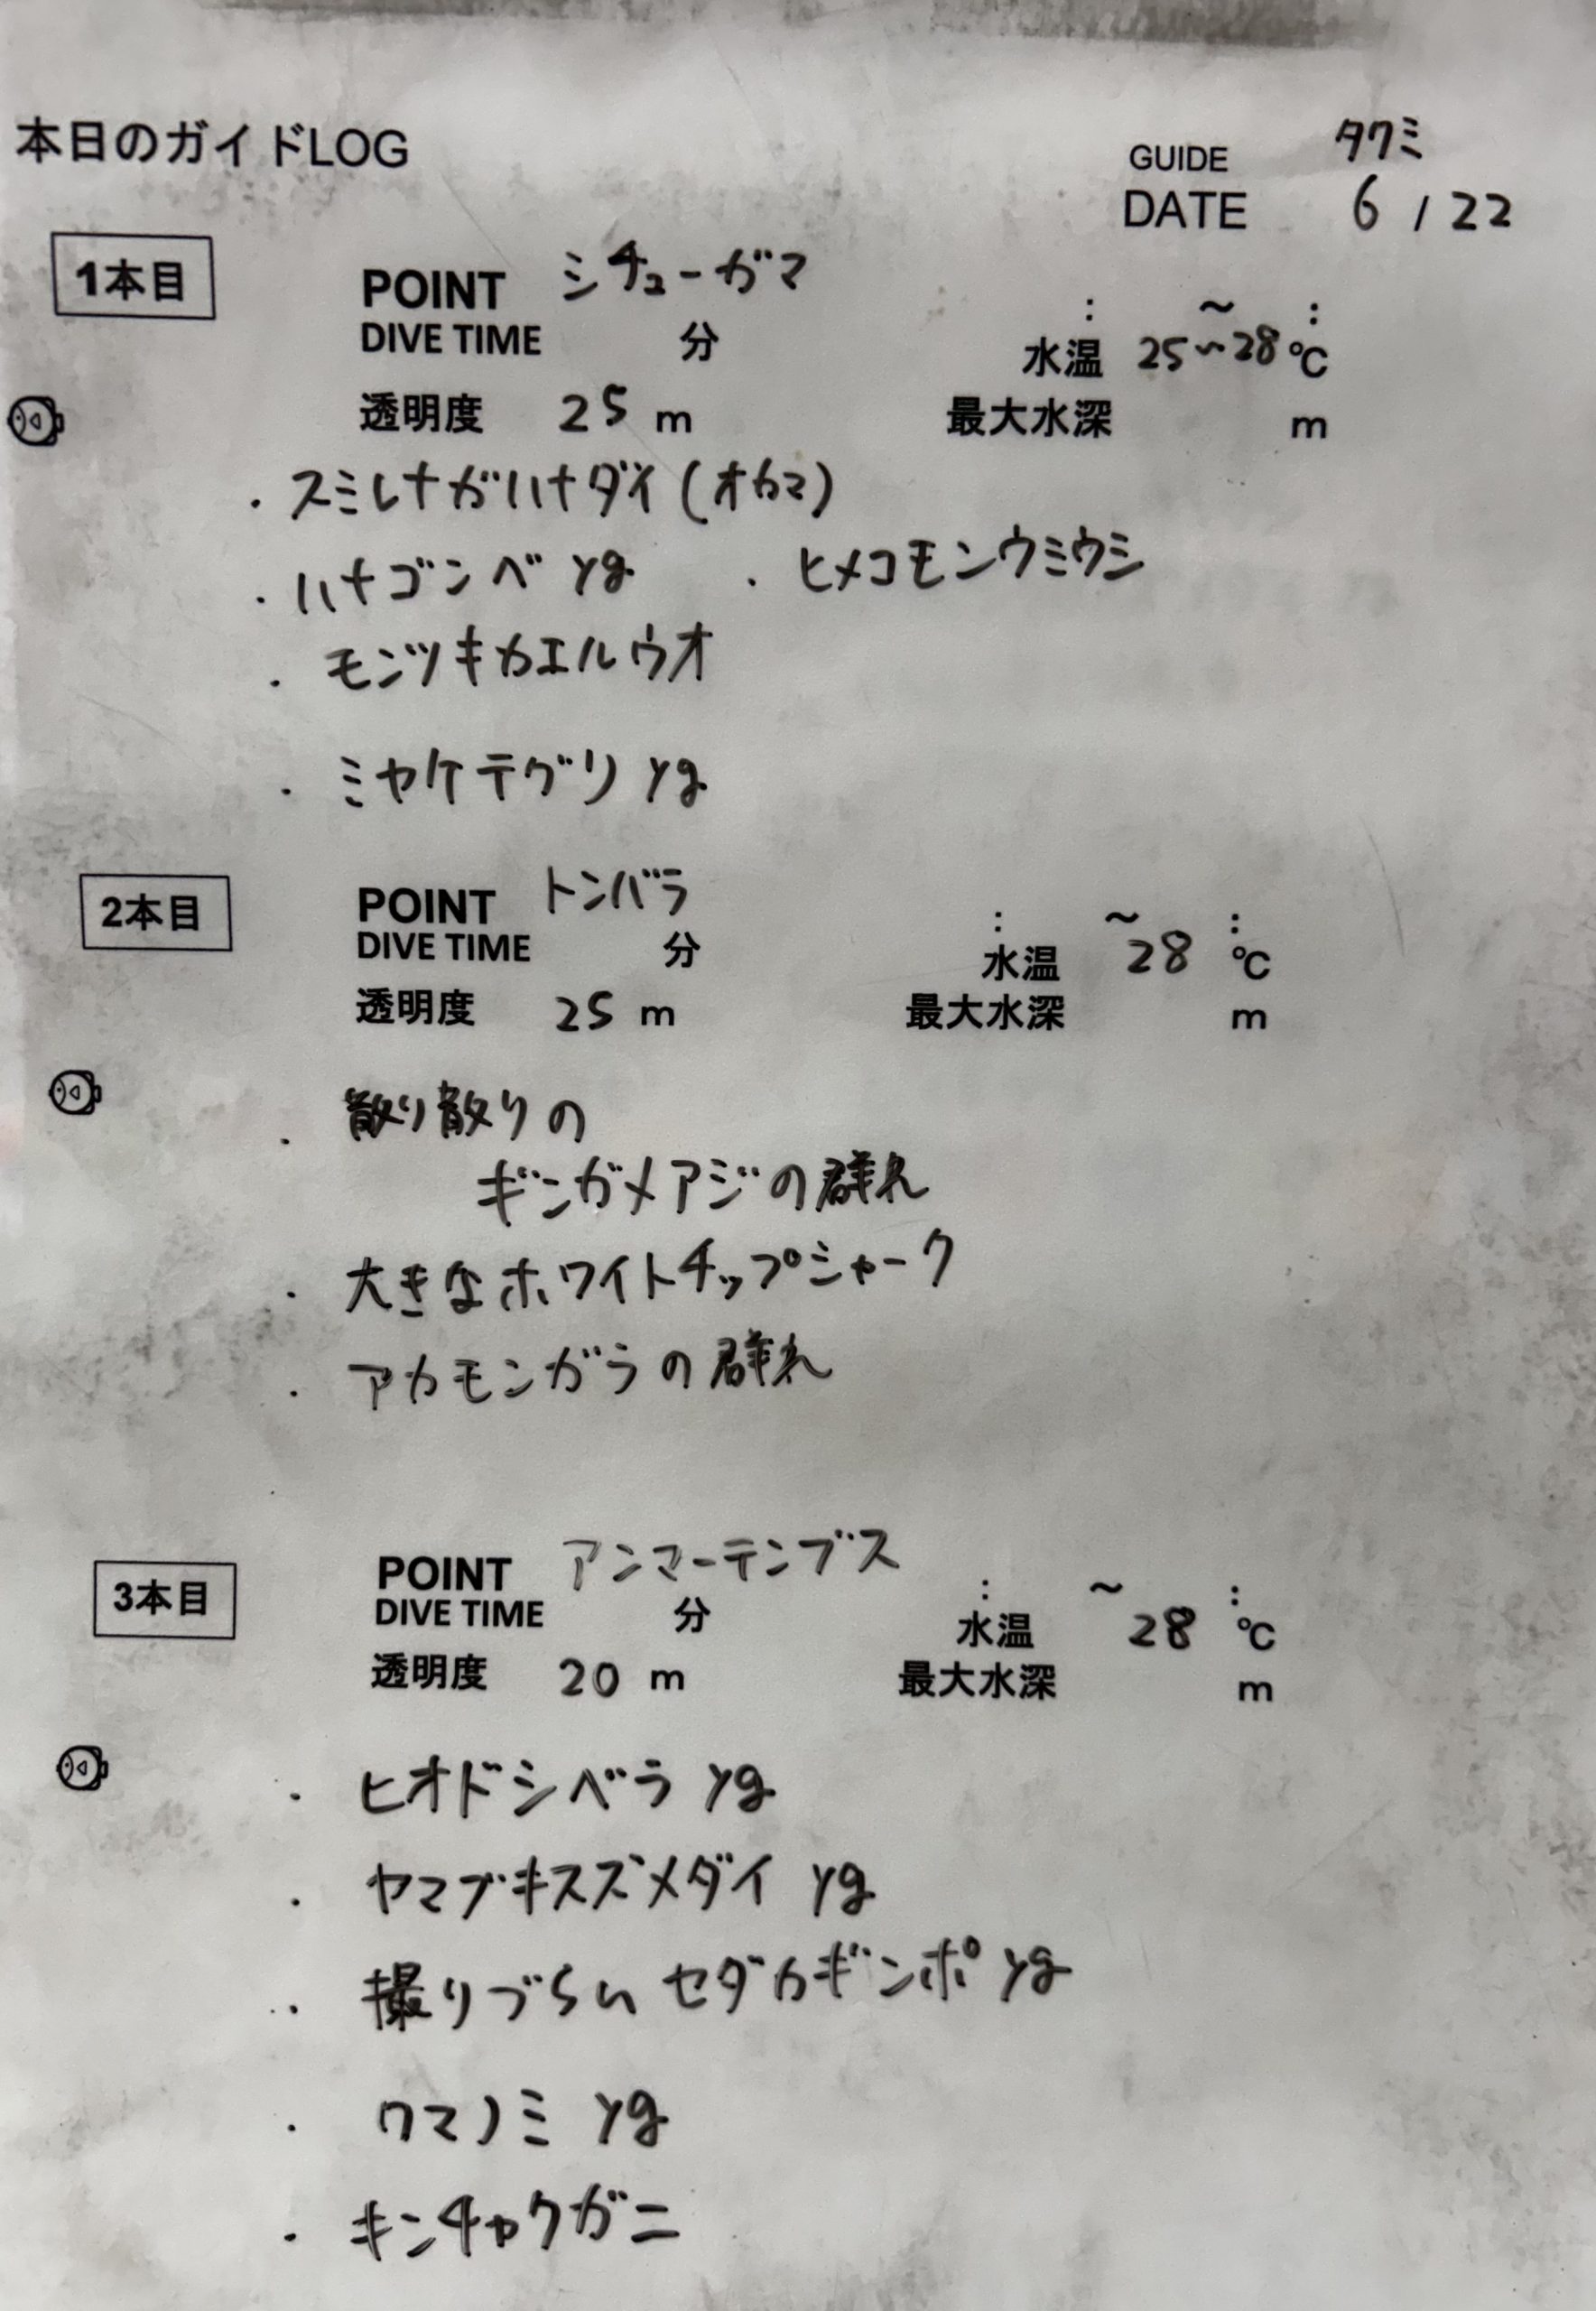 本日のガイドLOG
GUIDE タクミ
DATE 6 / 22
1本目
POINT シチューガマ
DIVE TIME 分 : ～ :
水温 25～28 ℃
透明度 25 m 最大水深 m
・スミレナガハナダイ(オカマ)
・ハナゴンベ yg ・ヒメコモンウミウシ
・モンツキカエルウオ
・ミヤケテグリ yg
2本目
POINT トンバラ
DIVE TIME 分 : ～ :
水温 28 ℃
透明度 25 m 最大水深 m
・散り散りの
ギンガメアジの群れ
・大きなホワイトチップシャーク
・アカモンガラの群れ
3本目
POINT アンマーテンブス
DIVE TIME 分 : ～ :
水温 28 ℃
透明度 20 m 最大水深 m
・ヒオドシベラ yg
・ヤマブキスズメダイ yg
・撮りづらい セダカギンポ yg
・クマノミ yg
・キンチャクガニ